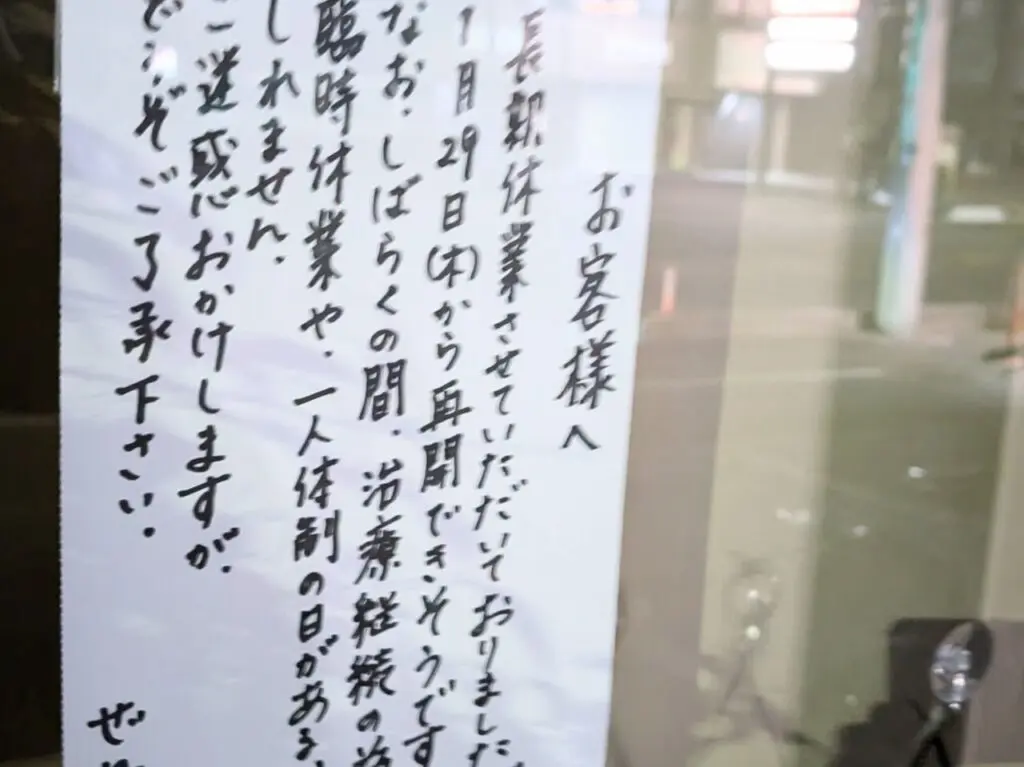 お客様へ
長期休業させていただいておりました
1月29日(木)から再開できそうです
なお、しばらくの間、治療継続の為
臨時休業や、一人体制の日がある
しれません、
ご迷惑おかけしますが、
どうぞご了承下さい。
ぜ